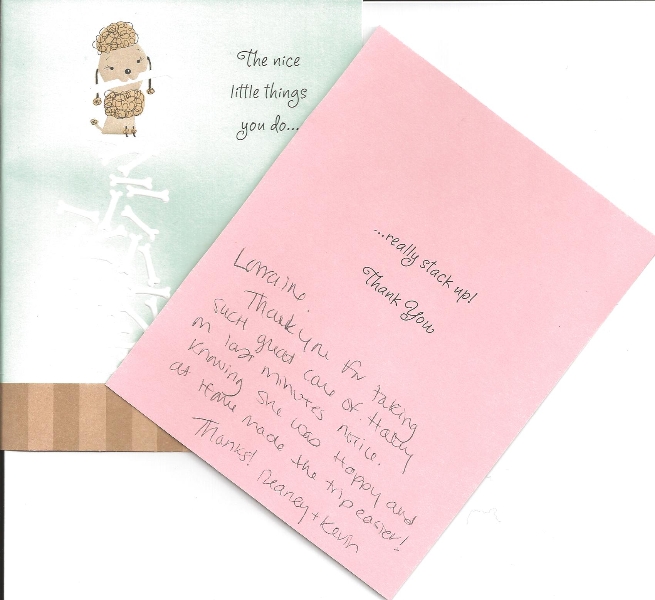 The nice
little things
you do...
...really stack up!
Thank You
Lorraine.
Thank you for taking
such great care of
on last minutes notice.
Knowing she was Happy and
at Home made the trip easier!
Thanks!
+ Kevin